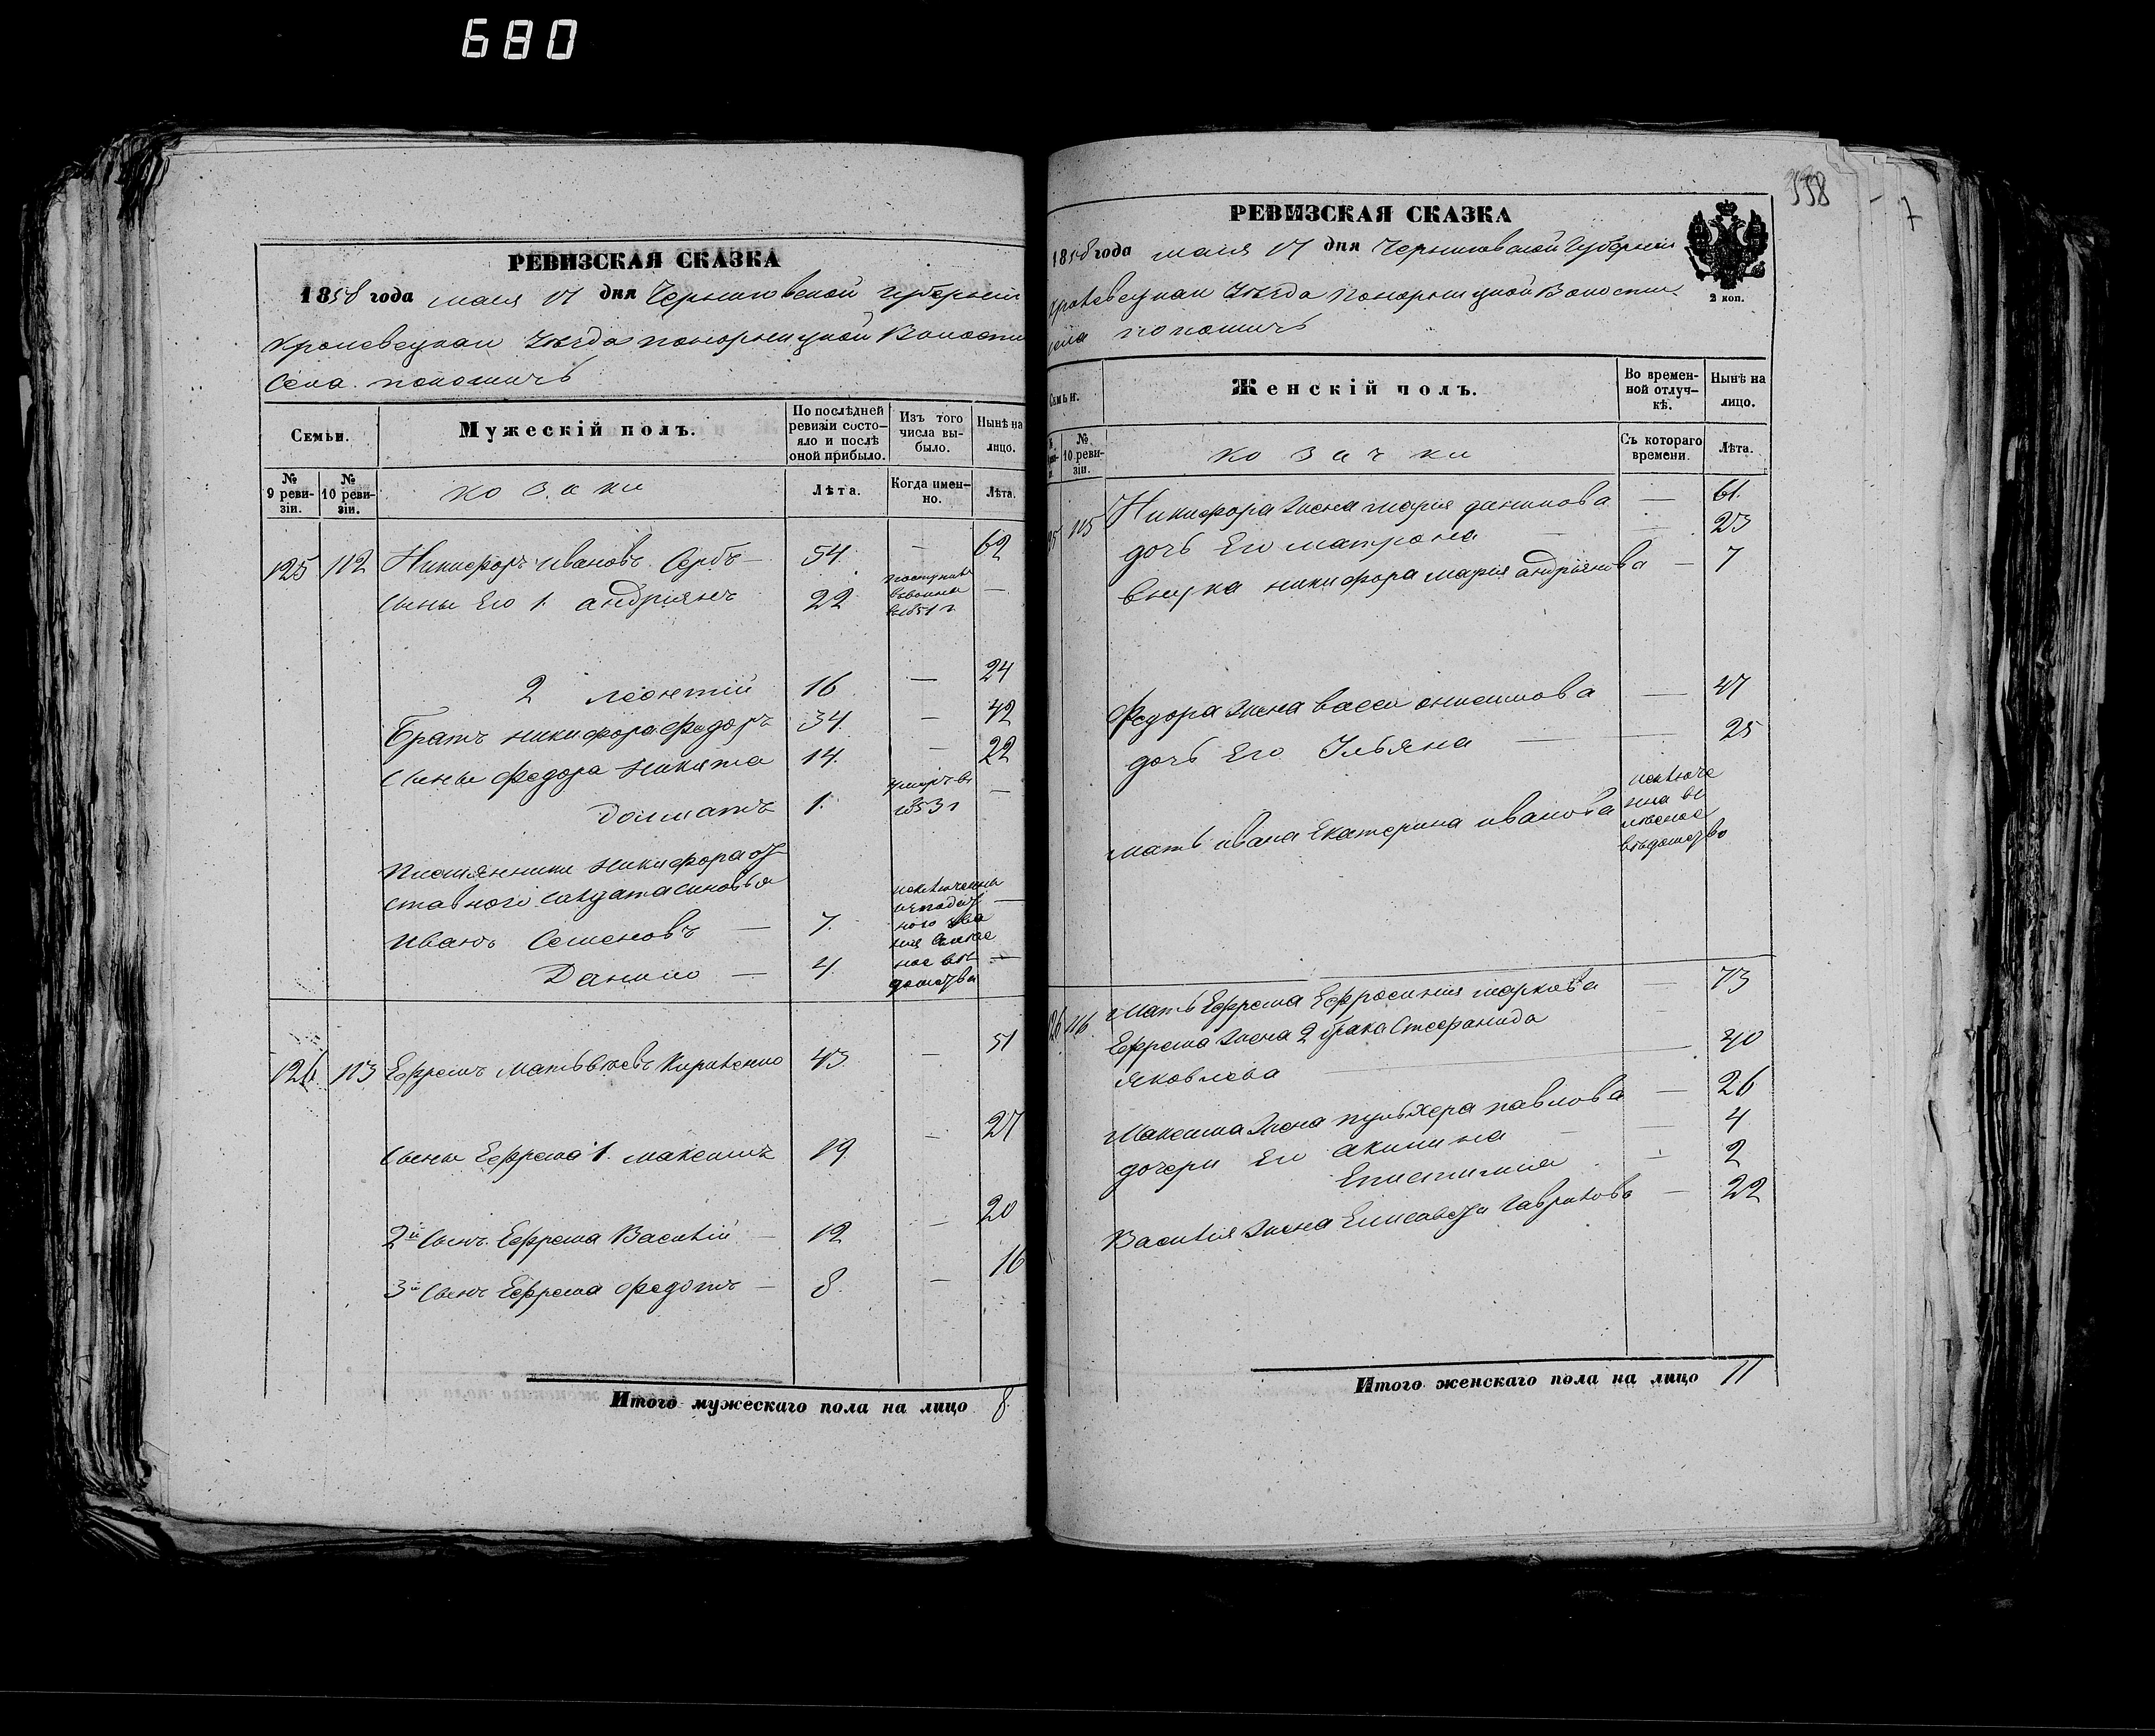 680
РЕВИЗСКАЯ СКАЗКА
1858 года мая 17 дня Черниговской Губерніи
Кролевецкаго Уезда понорницкой Волости
Села полошичъ
Семьи.
Мужескій полъ.
По послѣдней ревизіи состояло и послѣ оной прибыло.
Изъ того числа выбыло.
Нынѣ на лицо.
№ 9 ревизіи.
№ 10 ревизіи.
козаки
Лѣта.
Когда именно.
Лѣта.
125 112 Никифоръ Ивановъ Сербъ — 54. — 62
Сыны Его 1. андріянъ 22 поступилъ въ 1851 г —
2 леонтій 16 — 24
Братъ никифора Федоръ 34. — 42
Сыны федора Никита 14. — 22
долматъ 1. умеръ въ 1853 г —
Племянники Никифора от
ставного солдата сыновья
Иванъ Семеновъ — 7. —
Данило — 4. —
исключены
изъ подат
ного зва
ния
ное вѣ
домство
126 113 Ефремъ Матвѣевъ Кириленко 43. — 51
Сыны Ефрема 1. максимъ 19 — 27
2й Сынъ Ефрема Василій — 12 — 20
3й Сынъ Ефрема федотъ — 8. — 16
Итого мужескаго пола на лицо 8.
338
7
РЕВИЗСКАЯ СКАЗКА
1858 года мая 17 дня Черниговской Губерніи
кролевецкаго Уезда понорницкой Волости
села полошичъ
2 коп.
Семьи.
Женскій полъ.
Во временной отлучкѣ.
Нынѣ на лицо.
№ 10 ревизіи.
козачки
Съ котораго времени.
Лѣта.
115 Никифора жена марія данилова — 61.
дочь Его матрона — 23
внучка никифора марія андріянова — 7
Федора жена васса онисимова — 47
дочь Его Ульяна — 25
мать ивана Екатерина иванова
исключе
на въ
ное
вѣдомство
126 116. Мать Ефрема Ефросинія маркова — 73
Ефрема жена 2 брака Стефанида
Яковлева — 40
Максима жена пульхера павлова — 26
дочери Его акилина — 4
Епистимія — 2
Василія жена Елисавета Гаврилова — 22
Итого женскаго пола на лицо 11